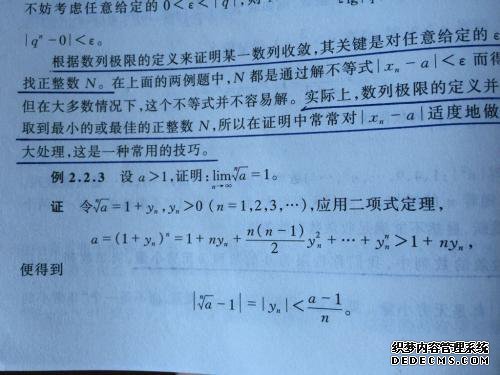 不妨考虑任意给定的 0<ε<|q|，则
|qⁿ-0|<ε。
根据数列极限的定义来证明某一数列收敛，其关键是对任意给定的 ε
找正整数 N。在上面的两例题中，N 都是通过解不等式|xₙ-a|<ε 而得
但在大多数情况下，这个不等式并不容易解。实际上，数列极限的定义并
取到最小的或最佳的正整数 N，所以在证明中常常对|xₙ-a|适度地做
大处理，这是一种常用的技巧。
例 2.2.3 设 a>1，证明：lim_{n→∞} ⁿ√a=1。
证 令ⁿ√a=1+yₙ，yₙ>0 (n=1,2,3,⋯)，应用二项式定理，
a=(1+yₙ)ⁿ=1+nyₙ+n(n-1)/2 yₙ²+⋯+yₙⁿ>1+nyₙ，
便得到
|ⁿ√a-1|=|yₙ|<(a-1)/n。
织梦内容管理系统
DEDECMS.COM